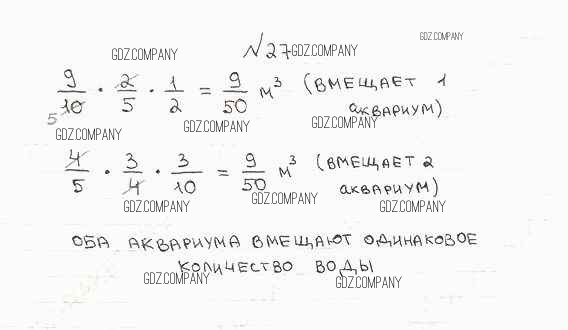 GDZ.COMPANY
№27 GDZ.COMPANY GDZ.COMPANY
9/10 · 2/5 · 1/2 = 9/50 м³ (ВМЕЩАЕТ 1
5 аквариум)
GDZ.COMPANY GDZ.COMPANY GDZ.COMPANY
4/5 · 3/4 · 3/10 = 9/50 м³ (ВМЕЩАЕТ 2
аквариум)
GDZ.COMPANY GDZ.COMPANY GDZ.COMPANY
ОБА АКВАРИУМА ВМЕЩАЮТ ОДИНАКОВОЕ
КОЛИЧЕСТВО ВОДЫ
GDZ.COMPANY GDZ.COMPANY